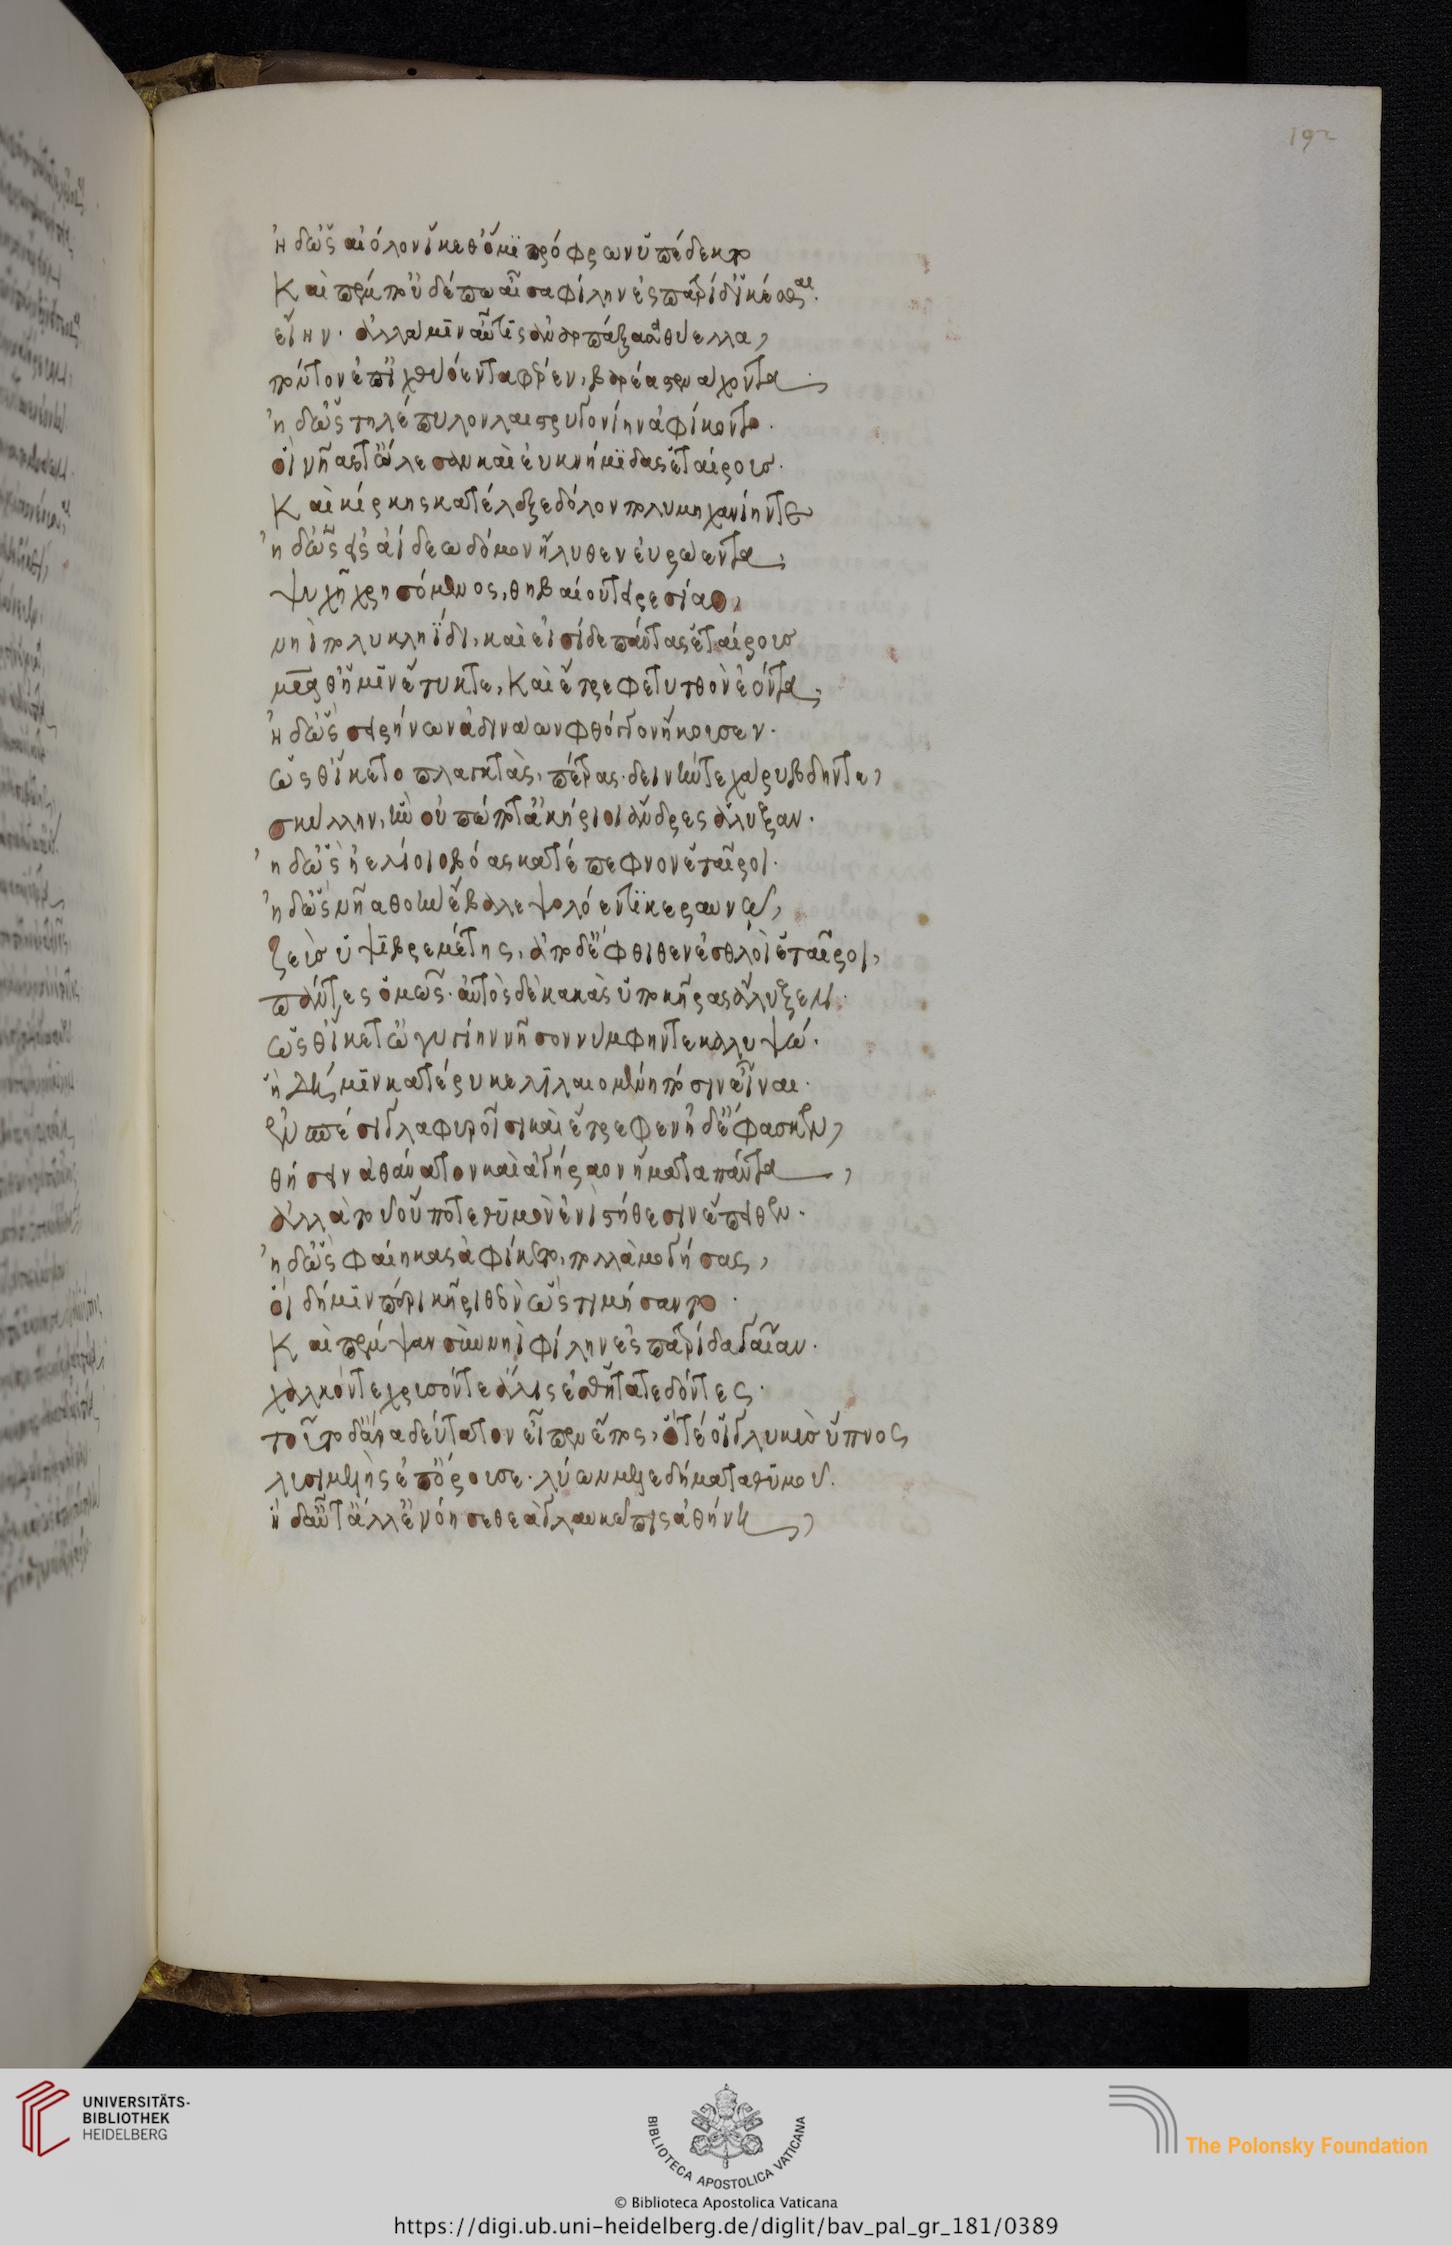 192
ἠδ' ὡς αἴολον ἵκεθ' ὅ μιν πρόφρων ὑπέδεκτο
Καὶ πέμπ' οὐδέ πω αἶσα φίλην ἐς πατρίδ' ἱκέσθαι.
εἴην. ἀλλά μιν αὖτις ἀναρπάξασα θύελλα,
πόντον ἐπ' ἰχθυόεντα φέρεν, βαρέα στενάχοντα.
ἠδ' ὡς τηλέπυλον λαιστρυγονίην ἀφίκοντο.
οἳ νῆας τ' ὤλεσαν καὶ ἐυκνήμιδας ἑταίρους.
Καὶ κίρκης κατέλεξε δόλον πολυμηχανίην τε
ἠδ' ὡς εἰς ἀίδεω δόμον ἤλυθεν εὐρώεντα,
ψυχῇ χρησόμενος, θηβαίου τειρεσίαο,
νηὶ πολυκληίδι, καὶ εἴσιδε πάντας ἑταίρους
μητέρα θ' ἥ μιν ἔτικτε, Καὶ ἔτρεφε τυτθὸν ἐόντα,
ἠδ' ὡς σειρήνων ἀδινάων φθόγγον ἤκουσεν.
ὥς θ' ἵκετο πλαγκτὰς, πέτρας. δεινήν τε χάρυβδην τε,
σκύλλην, ἣν οὐ πώποτ' ἀκήριοι ἄνδρες ἄλυξαν.
ἠδ' ὡς ἠελίοιο βόας κατέπεφνον ἑταῖροι.
ἠδ' ὡς νῆα θοὴν ἔβαλε ψολόεντι κεραυνῷ,
ζεὺς ὑψιβρεμέτης, ἀπὸ δ' ἔφθιθεν ἐσθλοὶ ἑταῖροι,
πάντες ὁμῶς. αὐτὸς δὲ κακὰς ὑπὸ κῆρας ἄλυξεν.
ὥς θ' ἵκετ' ὠγυγίην νῆσον νύμφην τε καλυψώ.
ἣ δή μιν κατέρυκε λιλαιομένη πόσιν εἶναι.
ἐν σπέσι γλαφυροῖσι καὶ ἔτρεφεν ἠδ' ἔφασκεν,
θήσειν ἀθάνατον καὶ ἀγήραον ἤματα πάντα,
ἀλλὰ τοῦ οὔποτε θυμὸν ἐνὶ στήθεσιν ἔπειθεν.
ἠδ' ὡς φαίηκας ἀφίκετο, πολλὰ μογήσας,
οἳ δή μιν περὶ κῆρι θεὸν ὣς τιμήσαντο.
Καὶ πέμψαν σὺν νηὶ φίλην ἐς πατρίδα γαῖαν.
χαλκόν τε χρυσόν τε ἅλις ἐσθῆτά τε δόντες.
τοῦτο δ' ἄρα δεύτατον εἶπεν ἔπος, ὅτέ οἱ γλυκὺς ὕπνος
λυσιμελὴς ἐπόρουσε. λύων μελεδήματα θυμοῦ.
ἡ δ' αὖτ' ἄλλ' ἐνόησε θεὰ γλαυκῶπις ἀθήνη,
UNIVERSITÄTS-
BIBLIOTHEK
HEIDELBERG
BIBLIOTECA APOSTOLICA VATICANA
The Polonsky Foundation
© Biblioteca Apostolica Vaticana
https://digi.ub.uni-heidelberg.de/diglit/bav_pal_gr_181/0389